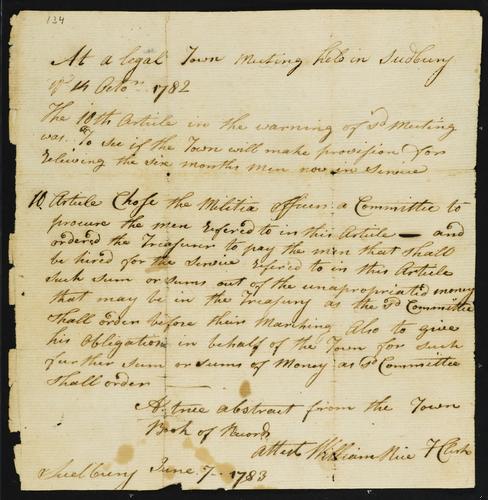 134
At a legal Town Meeting held in Sudbury
ye 14 Octor 1782
The 10th Article in the warning of sd Meeting
was To see if the Town will make provision for
Releiving the six months men now in Service
10. Article Chose the Militia officers a Committee to
procure the men Refered to in this Article — and
ordered the Treasurer to pay the men that shall
be hired for the Service refered to in this Article
such sum or sums out of the unapropriated money
that may be in the Treasury as the sd Committee
shall order before their Marching Also to give
his Obligation in behalf of the Town for such
further Sum or Sums of Money as sd Committee
shall order
A true abstract from the Town
Book of Records
attest William Rice T Clerk
Sudbury June 7 — 1783